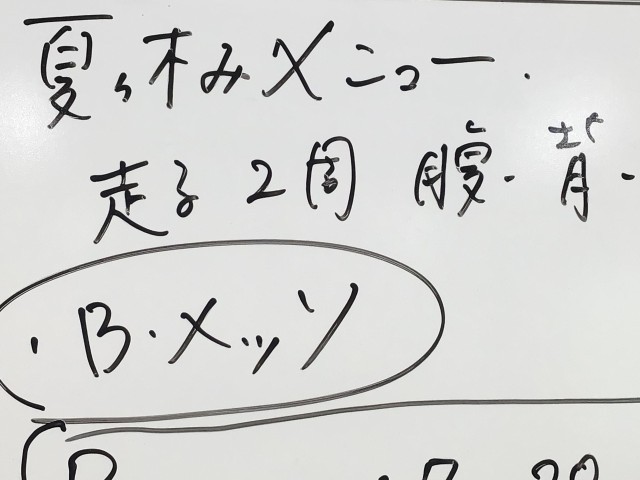 夏休みメニュー.
走る 2周 腹・背・
・B・メッツ